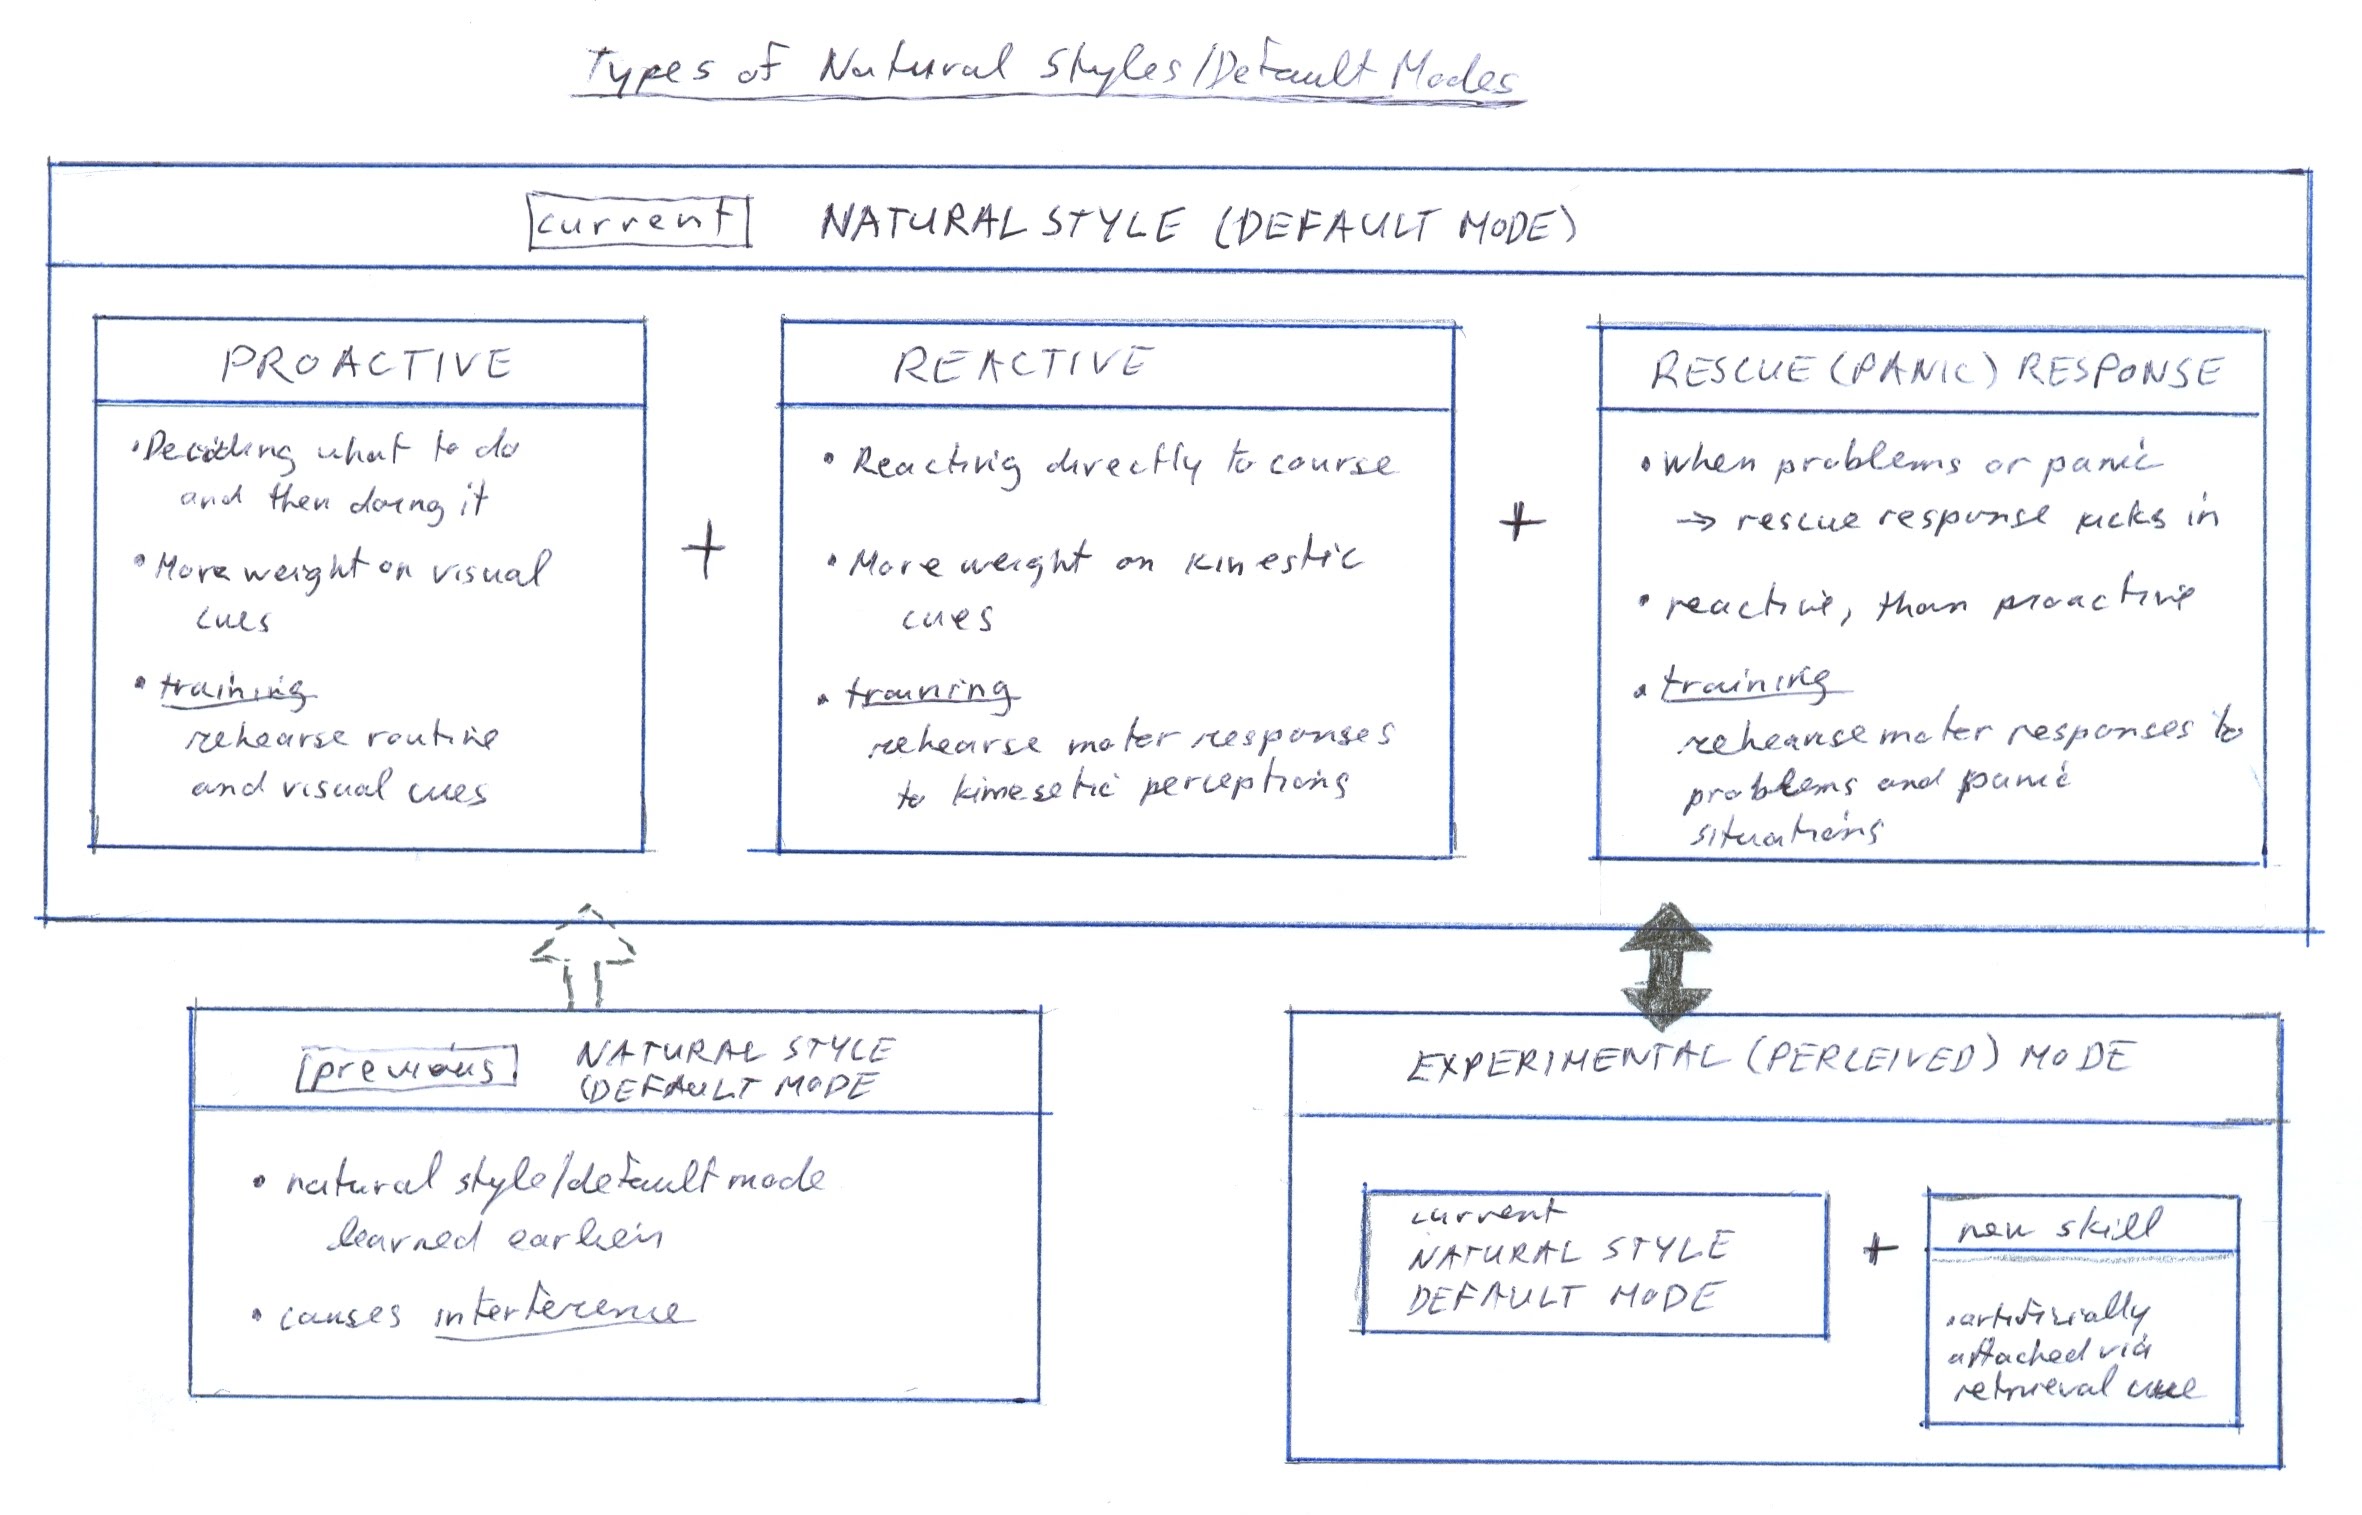 Types of Natural Styles/Default Modes
current NATURAL STYLE (DEFAULT MODE)
PROACTIVE
• Deciding what to do
and then doing it
• More weight on visual
cues
• training
rehearse routine
and visual cues
+
REACTIVE
• Reacting directly to course
• More weight on kinestic
cues
• training
rehearse motor responses
to kinesetic perceptions
+
RESCUE (PANIC) RESPONSE
• when problems or panic
→ rescue response kicks in
• reactive, than proactive
• training
rehearse motor responses to
problems and panic
situations
previous NATURAL STYLE
(DEFAULT MODE
• natural style/default mode
learned earlier
• causes interference
EXPERIMENTAL (PERCEIVED) MODE
current
NATURAL STYLE
DEFAULT MODE
+
new skill
• artifizially
attached via
retrieval cue